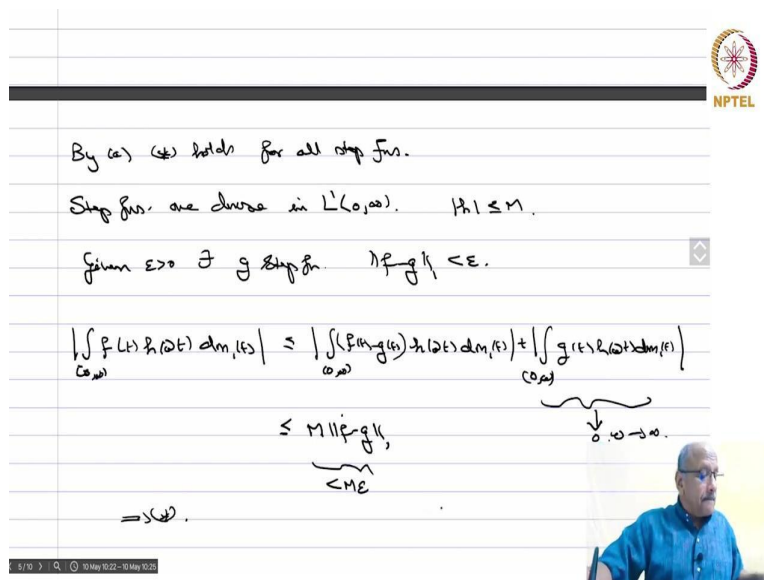 NPTEL
By (a) (*) holds for all step fns.
Step fns. are dense in L¹(0,∞). |h| ≤ M.
Given ε>0 ∃ g step fn. ‖f-g‖₁ < ε.
|∫ f(t) h(ωt) dm₁(t)| ≤ |∫(f(t)-g(t)) h(ωt) dm₁(t)| + |∫ g(t) h(ωt) dm₁(t)|
(0,∞) (0,∞) (0,∞)
≤ M‖f-g‖₁ ↓
0 ω→∞.
<Mε
⇒(*).
5/10 10 May 10:22 – 10 May 10:25